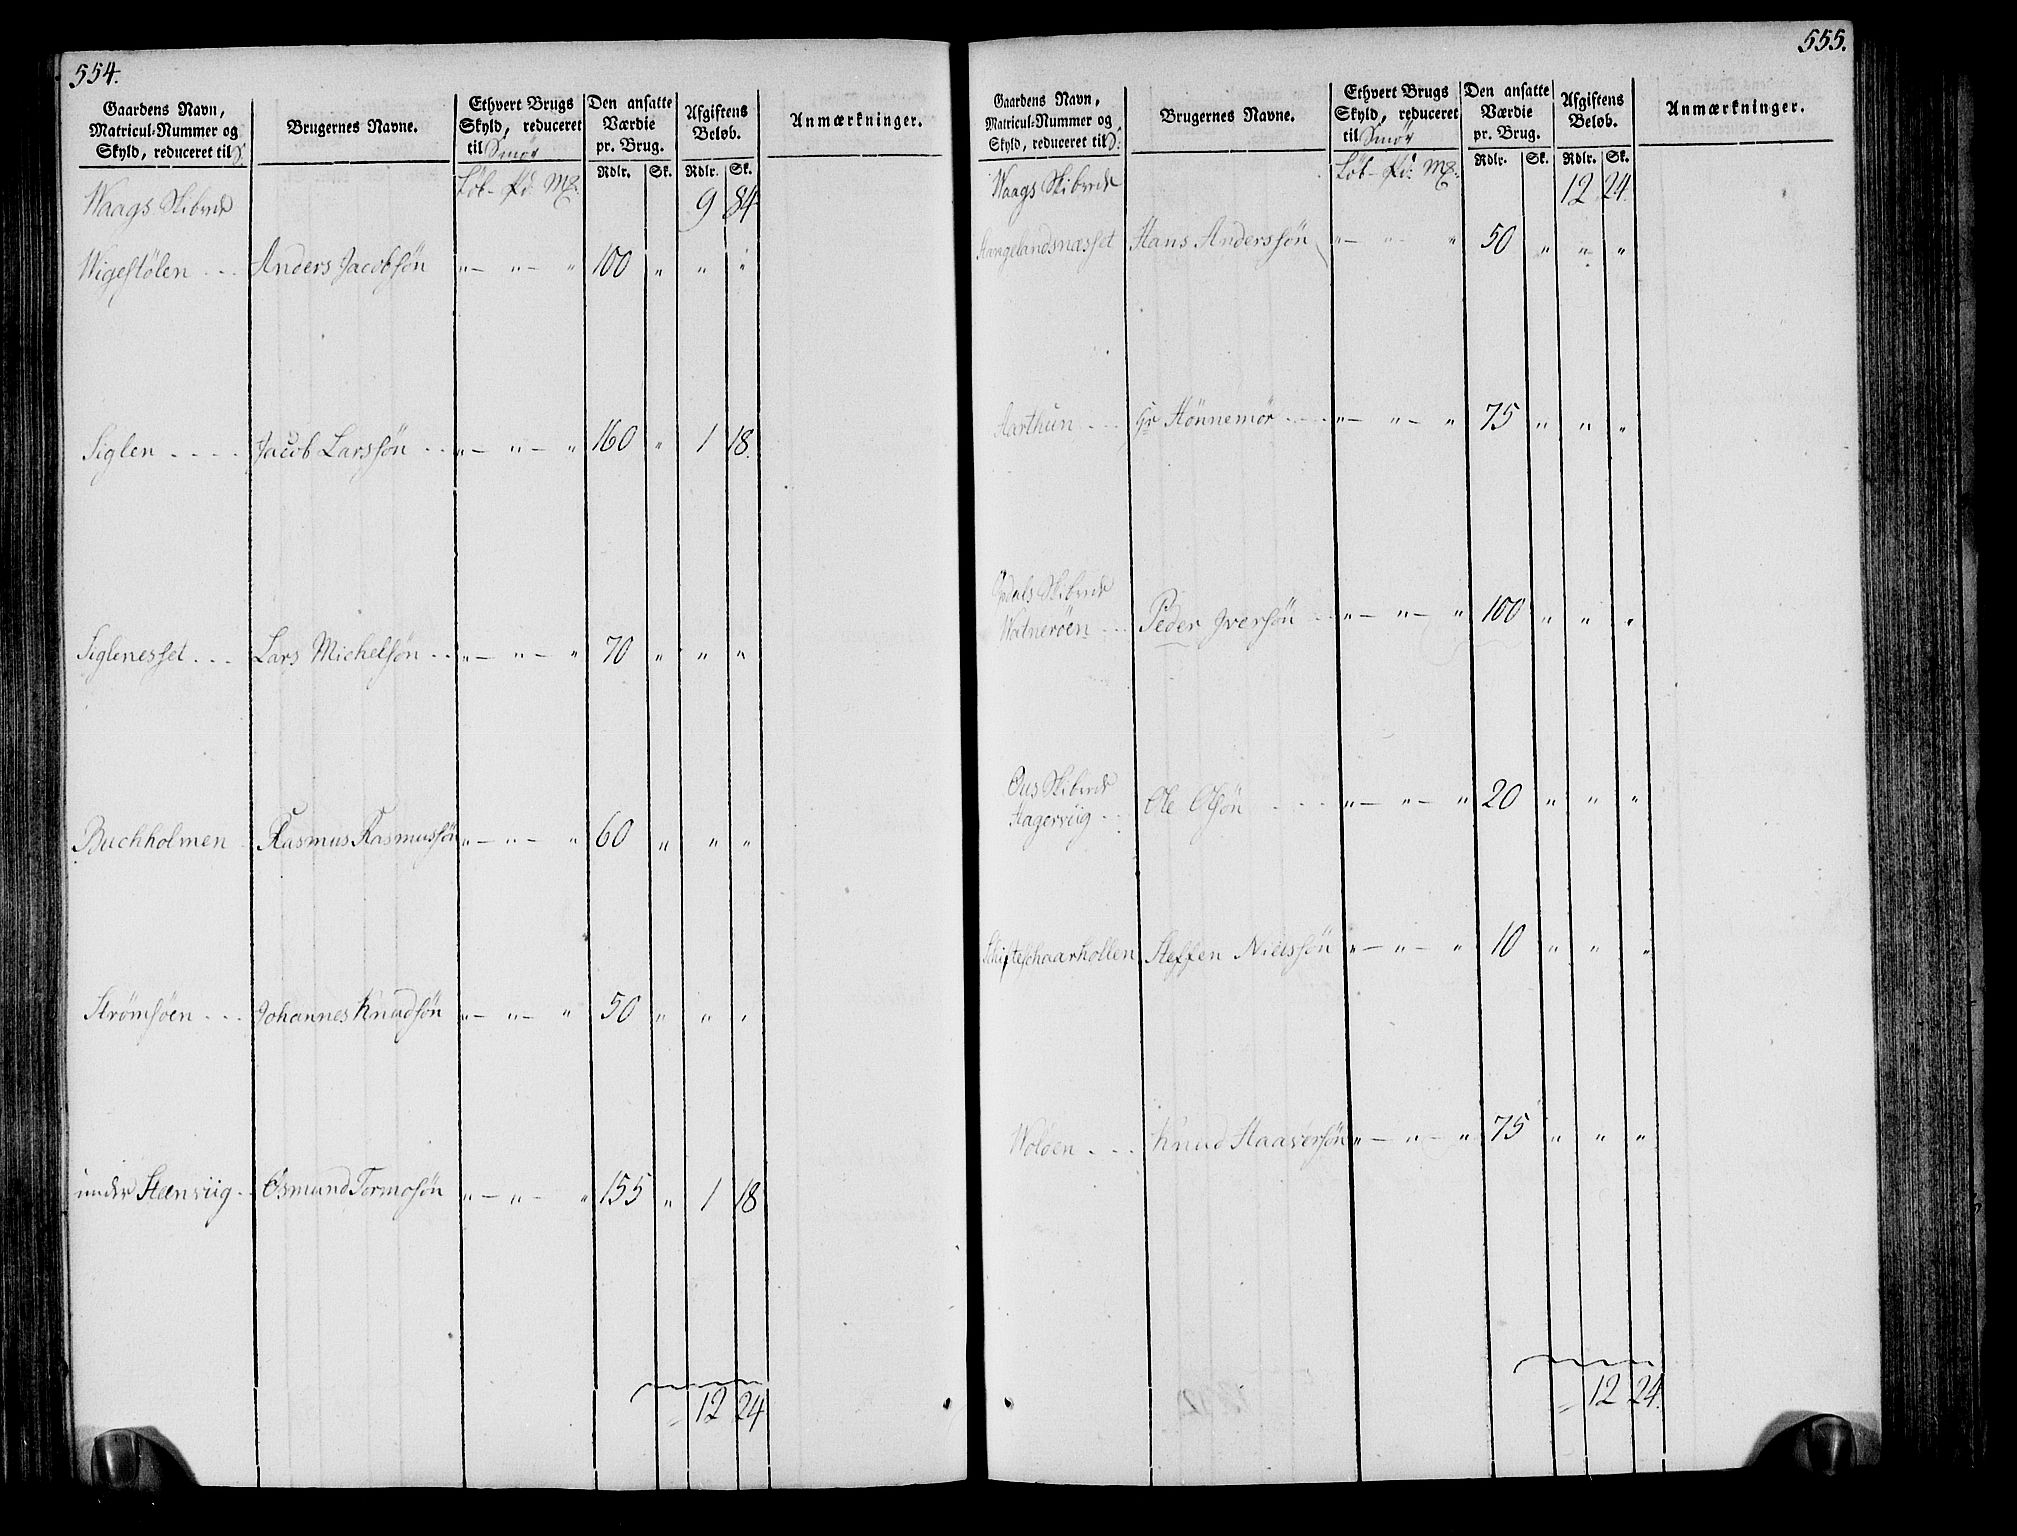 554.
Gaardens Navn, Matricul-Nummer og Skyld, reduceret til S.
Brugernes Navne.
Ethvert Brugs Skyld, reduceret til Smør
Den ansatte Værdie pr. Brug.
Afgiftens Beløb.
Anmærkninger.
Løb - Pd: Mk:
Rdlr. Sk. Rdlr. Sk.
Waags Skibrede 9 84
Wigestølen - - - Anders Jacobsøn „ - „ - „ 100 „ „ „
Siglen - - - - Jacob Larssøn - - „ - „ - „ 160 „ 1 18.
Siglenesset - - - Lars Michelsøn - - „ - „ - „ 70 „ „ „
Buchholmen - Rasmus Rasmussøn „ - „ - „ 60 „ „ „
Strømsøen - - - Johannes Knudsøn „ - „ - „ 50 „ „ „
under Steenviig - - Osmund Tormosøn „ - „ - „ 155 „ 1 18
12 24
555.
Gaardens Navn, Matricul-Nummer og Skyld, reduceret til S:
Brugernes Navne.
Ethvert Brugs Skyld, reduceret til Smør
Den ansatte Værdie pr. Brug.
Afgiftens Beløb.
Anmærkninger.
Løb - Pd: Mk:
Rdlr. Sk. Rdlr. Sk.
Waags Skibrede 12 24.
Hangelandsnæsset Hans Anderssøn „ - „ - „ 50 „ „ „
Aarthun - - - Hønnemor - - - - „ - „ - „ 75 „ „ „
Opdals Skibrede
Watnerøen - - - Peder Iversøn - - „ - „ - „ 100 „ „ „
Ous Skibrede
Hagerviig - - - Ole Olsøn - - - „ - „ - „ 20 „ „ „
Steffen Nielssøn „ - „ - „ 10 „ „ „
Woløen - - - Knud Haaversøn „ - „ - „ 75 „ „ „
12 24.